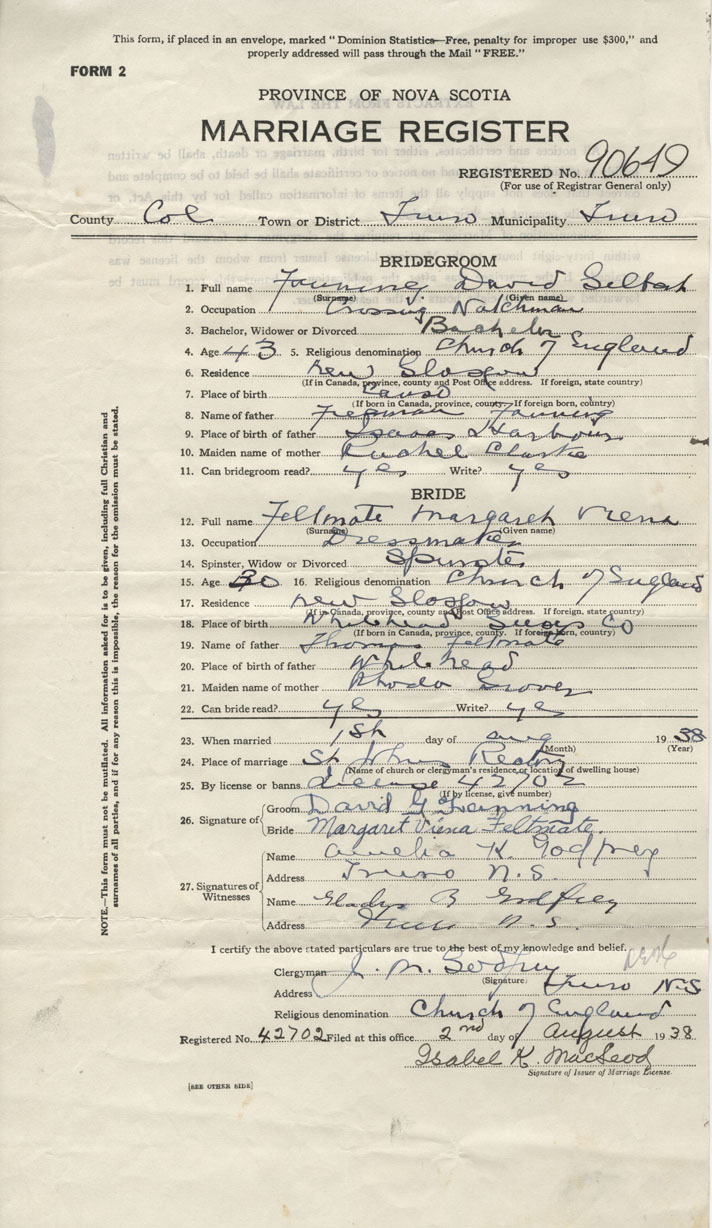 This form, if placed in an envelope, marked "Dominion Statistics—Free, penalty for improper use $300," and
properly addressed will pass through the Mail "FREE."
FORM 2
PROVINCE OF NOVA SCOTIA
MARRIAGE REGISTER
REGISTERED No. 90649
(For use of Registrar General only)
County Col Town or District Truro Municipality Truro
BRIDEGROOM
1. Full name Fanning David Gilbert
(Surname) (Given name)
2. Occupation Crossing Watchman
3. Bachelor, Widower or Divorced Bachelor
4. Age 43 5. Religious denomination Church of England
6. Residence New Glasgow
(If in Canada, province, county and Post Office address. If foreign, state country)
7. Place of birth Canso
(If born in Canada, province, county. If foreign born, country)
8. Name of father Freeman Fanning
9. Place of birth of father Isaacs Harbour
10. Maiden name of mother Rachel
11. Can bridegroom read? yes Write? yes
BRIDE
12. Full name Feltmate Margaret Viena
(Surname) (Given name)
13. Occupation Dressmaker
14. Spinster, Widow or Divorced Spinster
15. Age 30 16. Religious denomination Church of England
17. Residence New Glasgow
(If in Canada, province, county and Post Office address. If foreign, state country)
18. Place of birth Whitehead Guys Co
(If born in Canada, province, county. If foreign born, country)
19. Name of father Thomas Feltmate
20. Place of birth of father Whitehead
21. Maiden name of mother Rhoda Grover
22. Can bride read? yes Write? yes
23. When married 1st day of Aug 1938
(Month) (Year)
24. Place of marriage St Johns Rectory
(Name of church or clergyman's residence or location of dwelling house)
25. By license or banns license 42702
(If by license, give number)
26. Signature of
Groom David G Fanning
Bride Margaret Viena Feltmate
27. Signatures of Witnesses
Name Amelia K. Godfrey
Address Truro N.S.
Name Gladys B Godfrey
Address Truro N.S.
I certify the above stated particulars are true to the best of my knowledge and belief.
Clergyman J. M. Godfrey
(Signature)
Address Truro N.S
Religious denomination Church of England
Registered No. 42702 Filed at this office 2nd day of August 1938
Isabel K. MacLeod
Signature of Issuer of Marriage License.
[SEE OTHER SIDE]
NOTE.—This form must not be mutilated. All information asked for is to be given, including full Christian and
surnames of all parties, and if for any reason this is impossible, the reason for the omission must be stated.